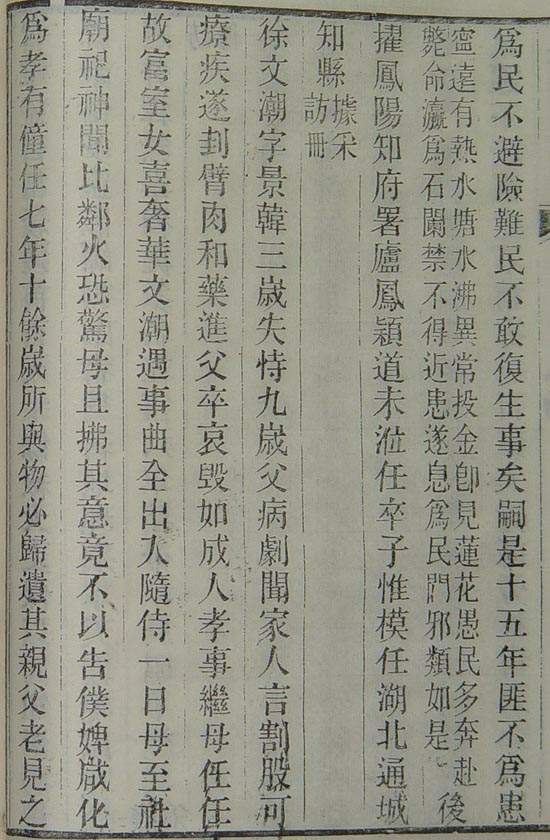 爲民不避險難民不敢復生事矣嗣是十五年匪不爲患
寧遠有熱水塘水沸異常投金卽見蓮花愚民多奔赴
斃命瀛爲石闌禁不得近患遂息爲民閑邪類如是
後
擢鳳陽知府署廬鳳潁道未涖任卒子惟模任湖北通城
知縣
據采
訪冊
徐文潮字景韓三歲失恃九歲父病劇聞家人言割股可
療疾遂刲臂肉和藥進父卒哀毀如成人孝事繼母任任
故富室女喜奢華文潮遇事曲全出入隨侍一日母至社
廟祀神聞比鄰火恐驚母且拂其意竟不以告僕婢咸化
爲孝有僮任七年十餘歲所與物必歸遺其親父老見之